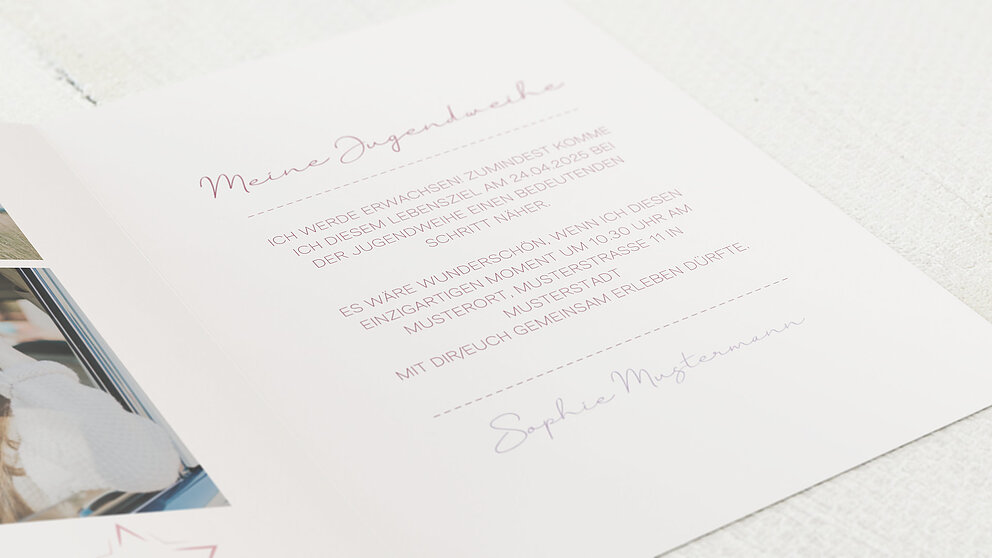 Meine Jugendweihe
ICH WERDE ERWACHSEN! ZUMINDEST KOMME
ICH DIESEM LEBENSZIEL AM 24.04.2025 BEI
DER JUGENDWEIHE EINEN BEDEUTENDEN
SCHRITT NÄHER.
ES WÄRE WUNDERSCHÖN, WENN ICH DIESEN
EINZIGARTIGEN MOMENT UM 10.30 UHR AM
MUSTERORT, MUSTERSTRASSE 11 IN
MUSTERSTADT
MIT DIR/EUCH GEMEINSAM ERLEBEN DÜRFTE.
Sophie Mustermann